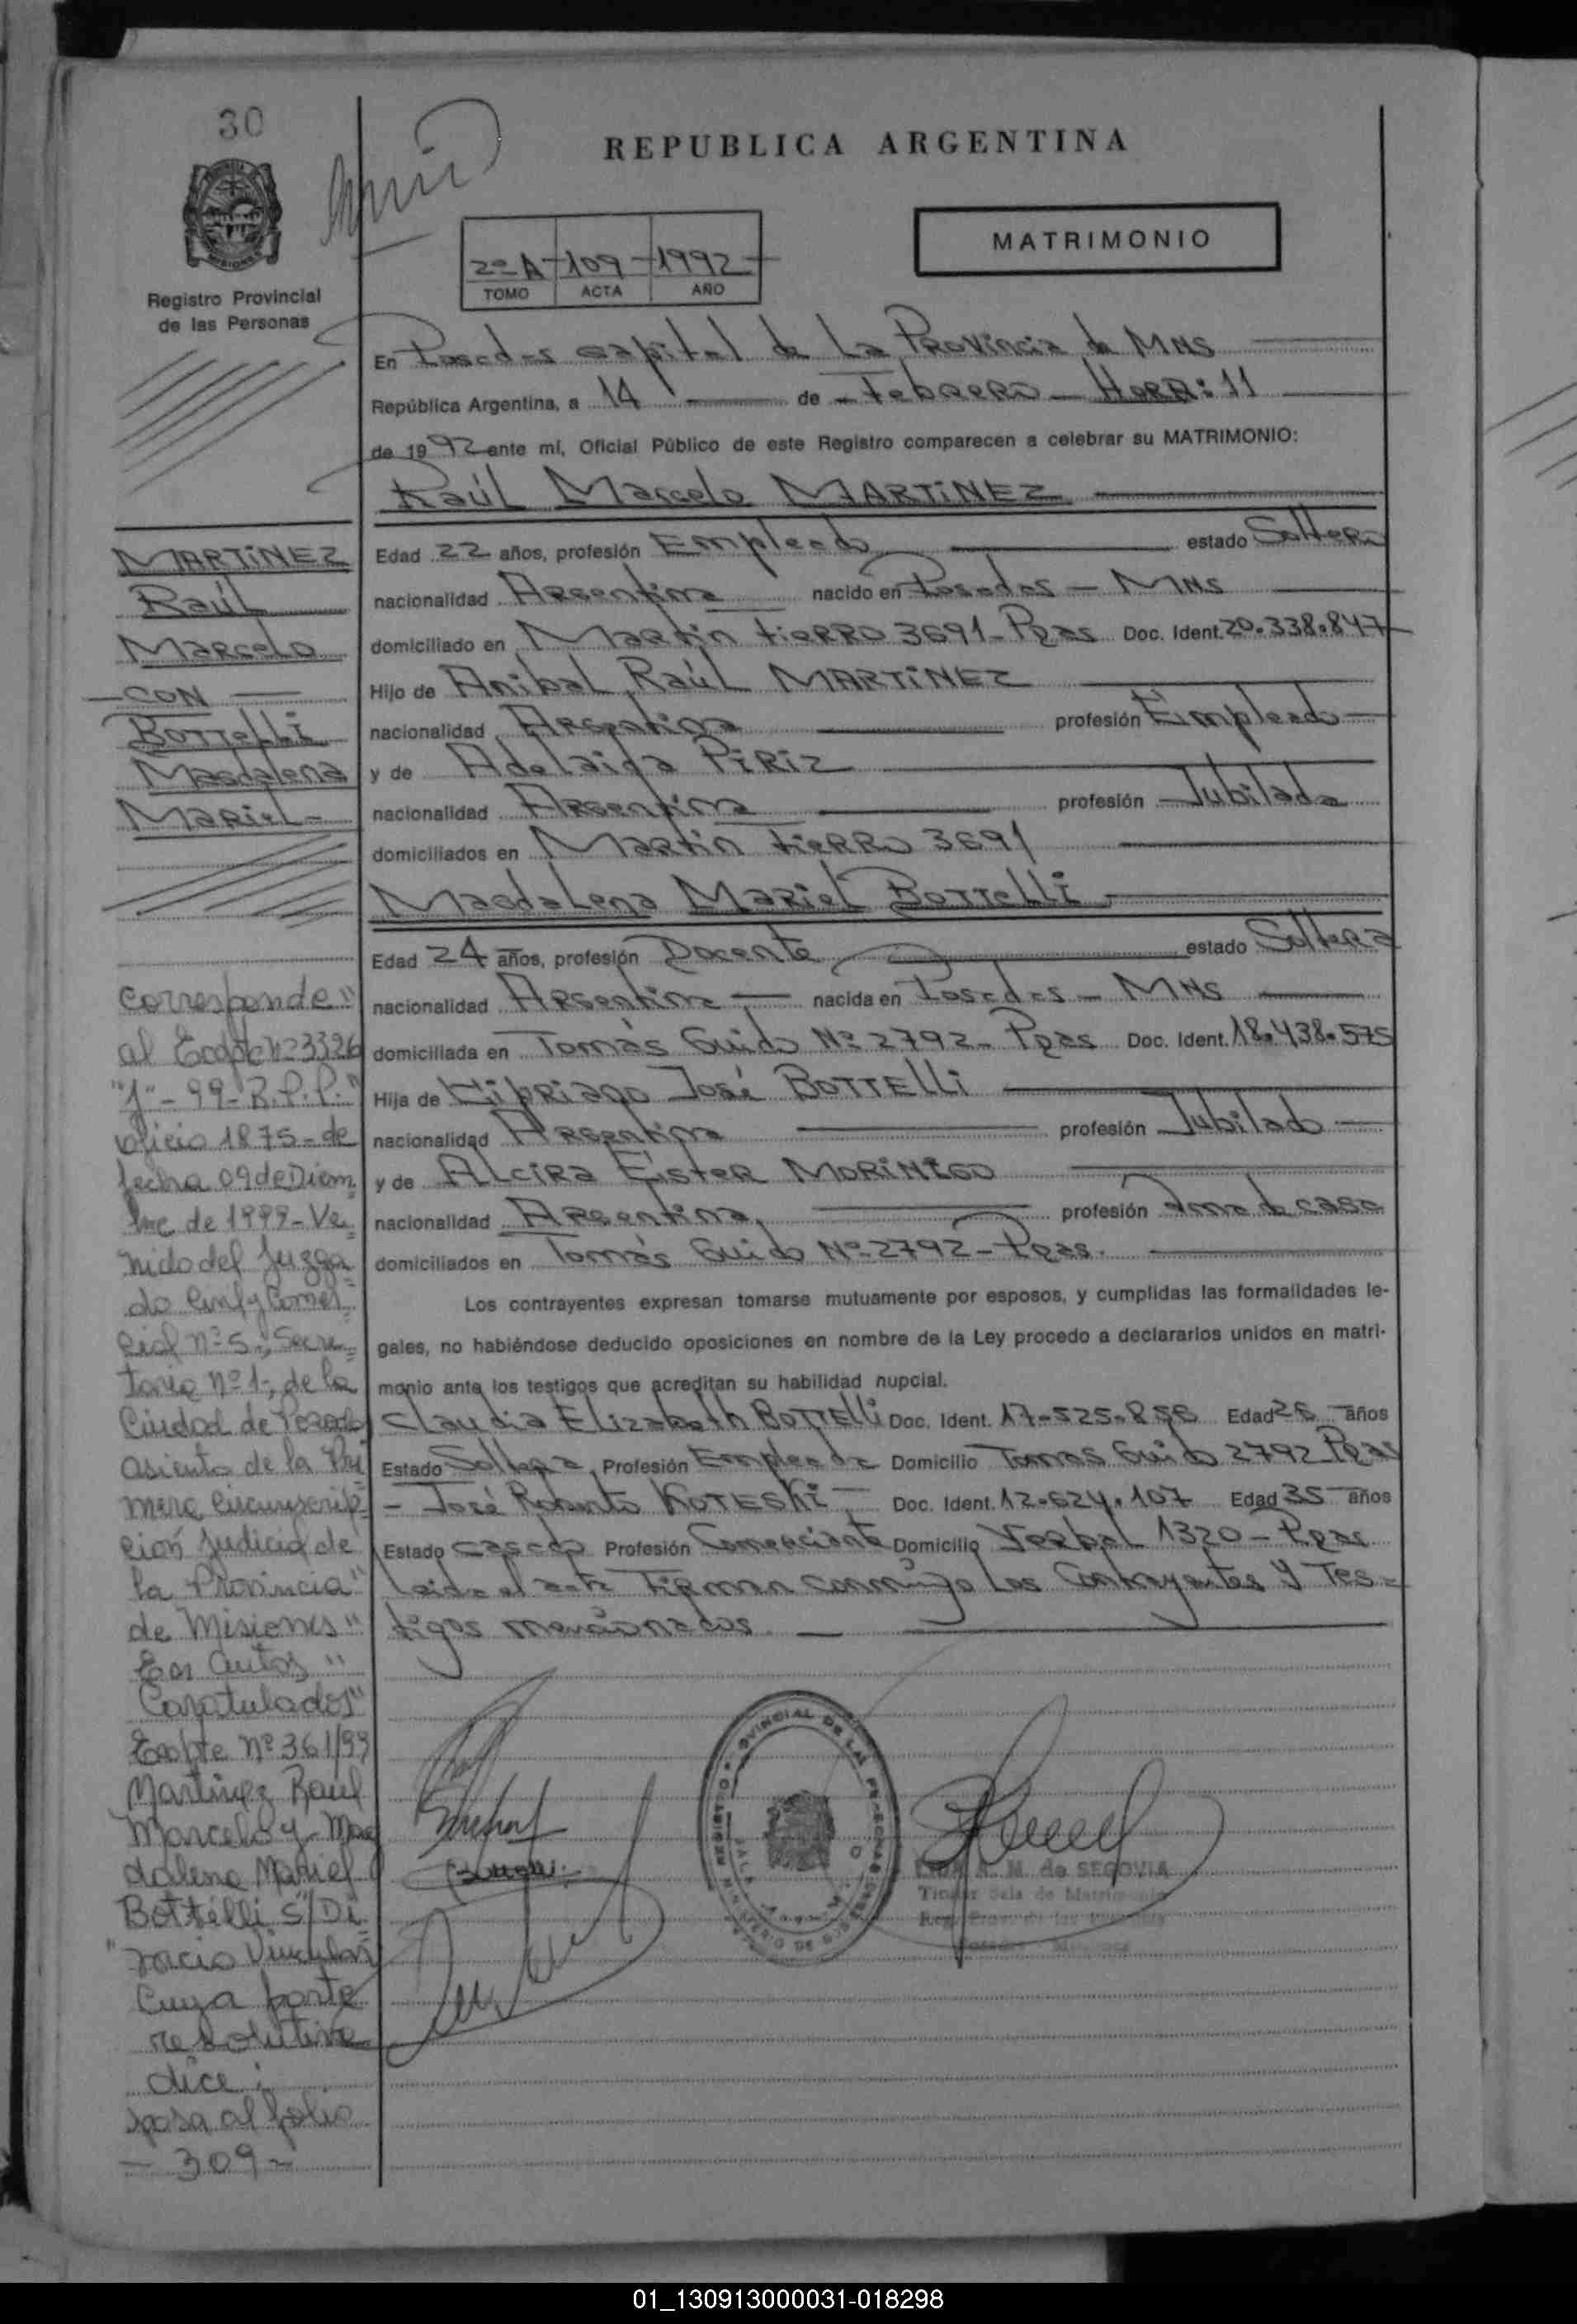 30
REPUBLICA ARGENTINA
MATRIMONIO
2º A - 109 - 1992
TOMO ACTA AÑO
Registro Provincial
de las Personas
En Posadas capital de La Provincia de MNS
República Argentina, a 14 de Febrero - HORA: 11
de 1992 ante mí, Oficial Público de este Registro comparecen a celebrar su MATRIMONIO:
Raúl Marcelo MARTINEZ
Edad 22 años, profesión Empleado estado Soltero
nacionalidad Argentina nacido en Posadas - MNS
domiciliado en Martín Fierro 3691 - Pdas Doc. Ident. 20.338.847
Hijo de Anibal Raúl MARTINEZ
nacionalidad Argentina profesión Empleado
y de Adelaida PIRIZ
nacionalidad Argentina profesión Jubilada
domiciliados en Martín Fierro 3691
Magdalena Mariel BOTTELLI
Edad 24 años, profesión Docente estado Soltera
nacionalidad Argentina nacida en Posadas - MNS
domiciliada en Tomás Guido Nº 2792 - Pdas Doc. Ident. 18.438.575
Hija de Cipriano José BOTTELLI
nacionalidad Argentina profesión Jubilado
y de Alcira Ester MORINIGO
nacionalidad Argentina profesión Ama de casa
domiciliados en Tomás Guido Nº 2792 - Pdas.
Los contrayentes expresan tomarse mutuamente por esposos, y cumplidas las formalidades le-
gales, no habiéndose deducido oposiciones en nombre de la Ley procedo a declararlos unidos en matri-
monio ante los testigos que acreditan su habilidad nupcial.
Claudia Elizabeth BOTTELLI Doc. Ident. 17.525.856 Edad 26 años
Estado Soltera Profesión Empleada Domicilio Tomas Guido 2792 Pdas
- José Roberto KOTESKI - Doc. Ident. 12.624.107 Edad 35 años
Estado casado Profesión Comerciante Domicilio Yerbal 1320 - Pdas
Leida el acta Firman conmigo Los Contrayentes y Tes=
tigos mencionados
MARTINEZ
Raúl
Marcelo
- CON
BOTTELLI
Magdalena
Mariel -
Corresponde"
al Expte Nº 3326
"J" - 99 - R.P.P."
oficio 1875 - de
fecha 09 de Diciem=
bre de 1999 - Ve=
nido del Juzga=
do Civil y Comer=
cial nº 5, Secre=
taria nº 1, de la
Ciudad de Posadas
asiento de la Pri
mera Circunscrip=
ción Judicial de
la Provincia"
de Misiones"
En autos"
Caratulados"
Expte nº 361/99
Martinez Raul
Marcelo y Mag
dalena Mariel
Bottélli S/Di=
"vorcio Vincular"
Cuya parte
resolutiva
dice:
pasa al folio
- 309 -
A. M. de SEGOVIA
Titular Sala de Matrimonio
01_130913000031-018298